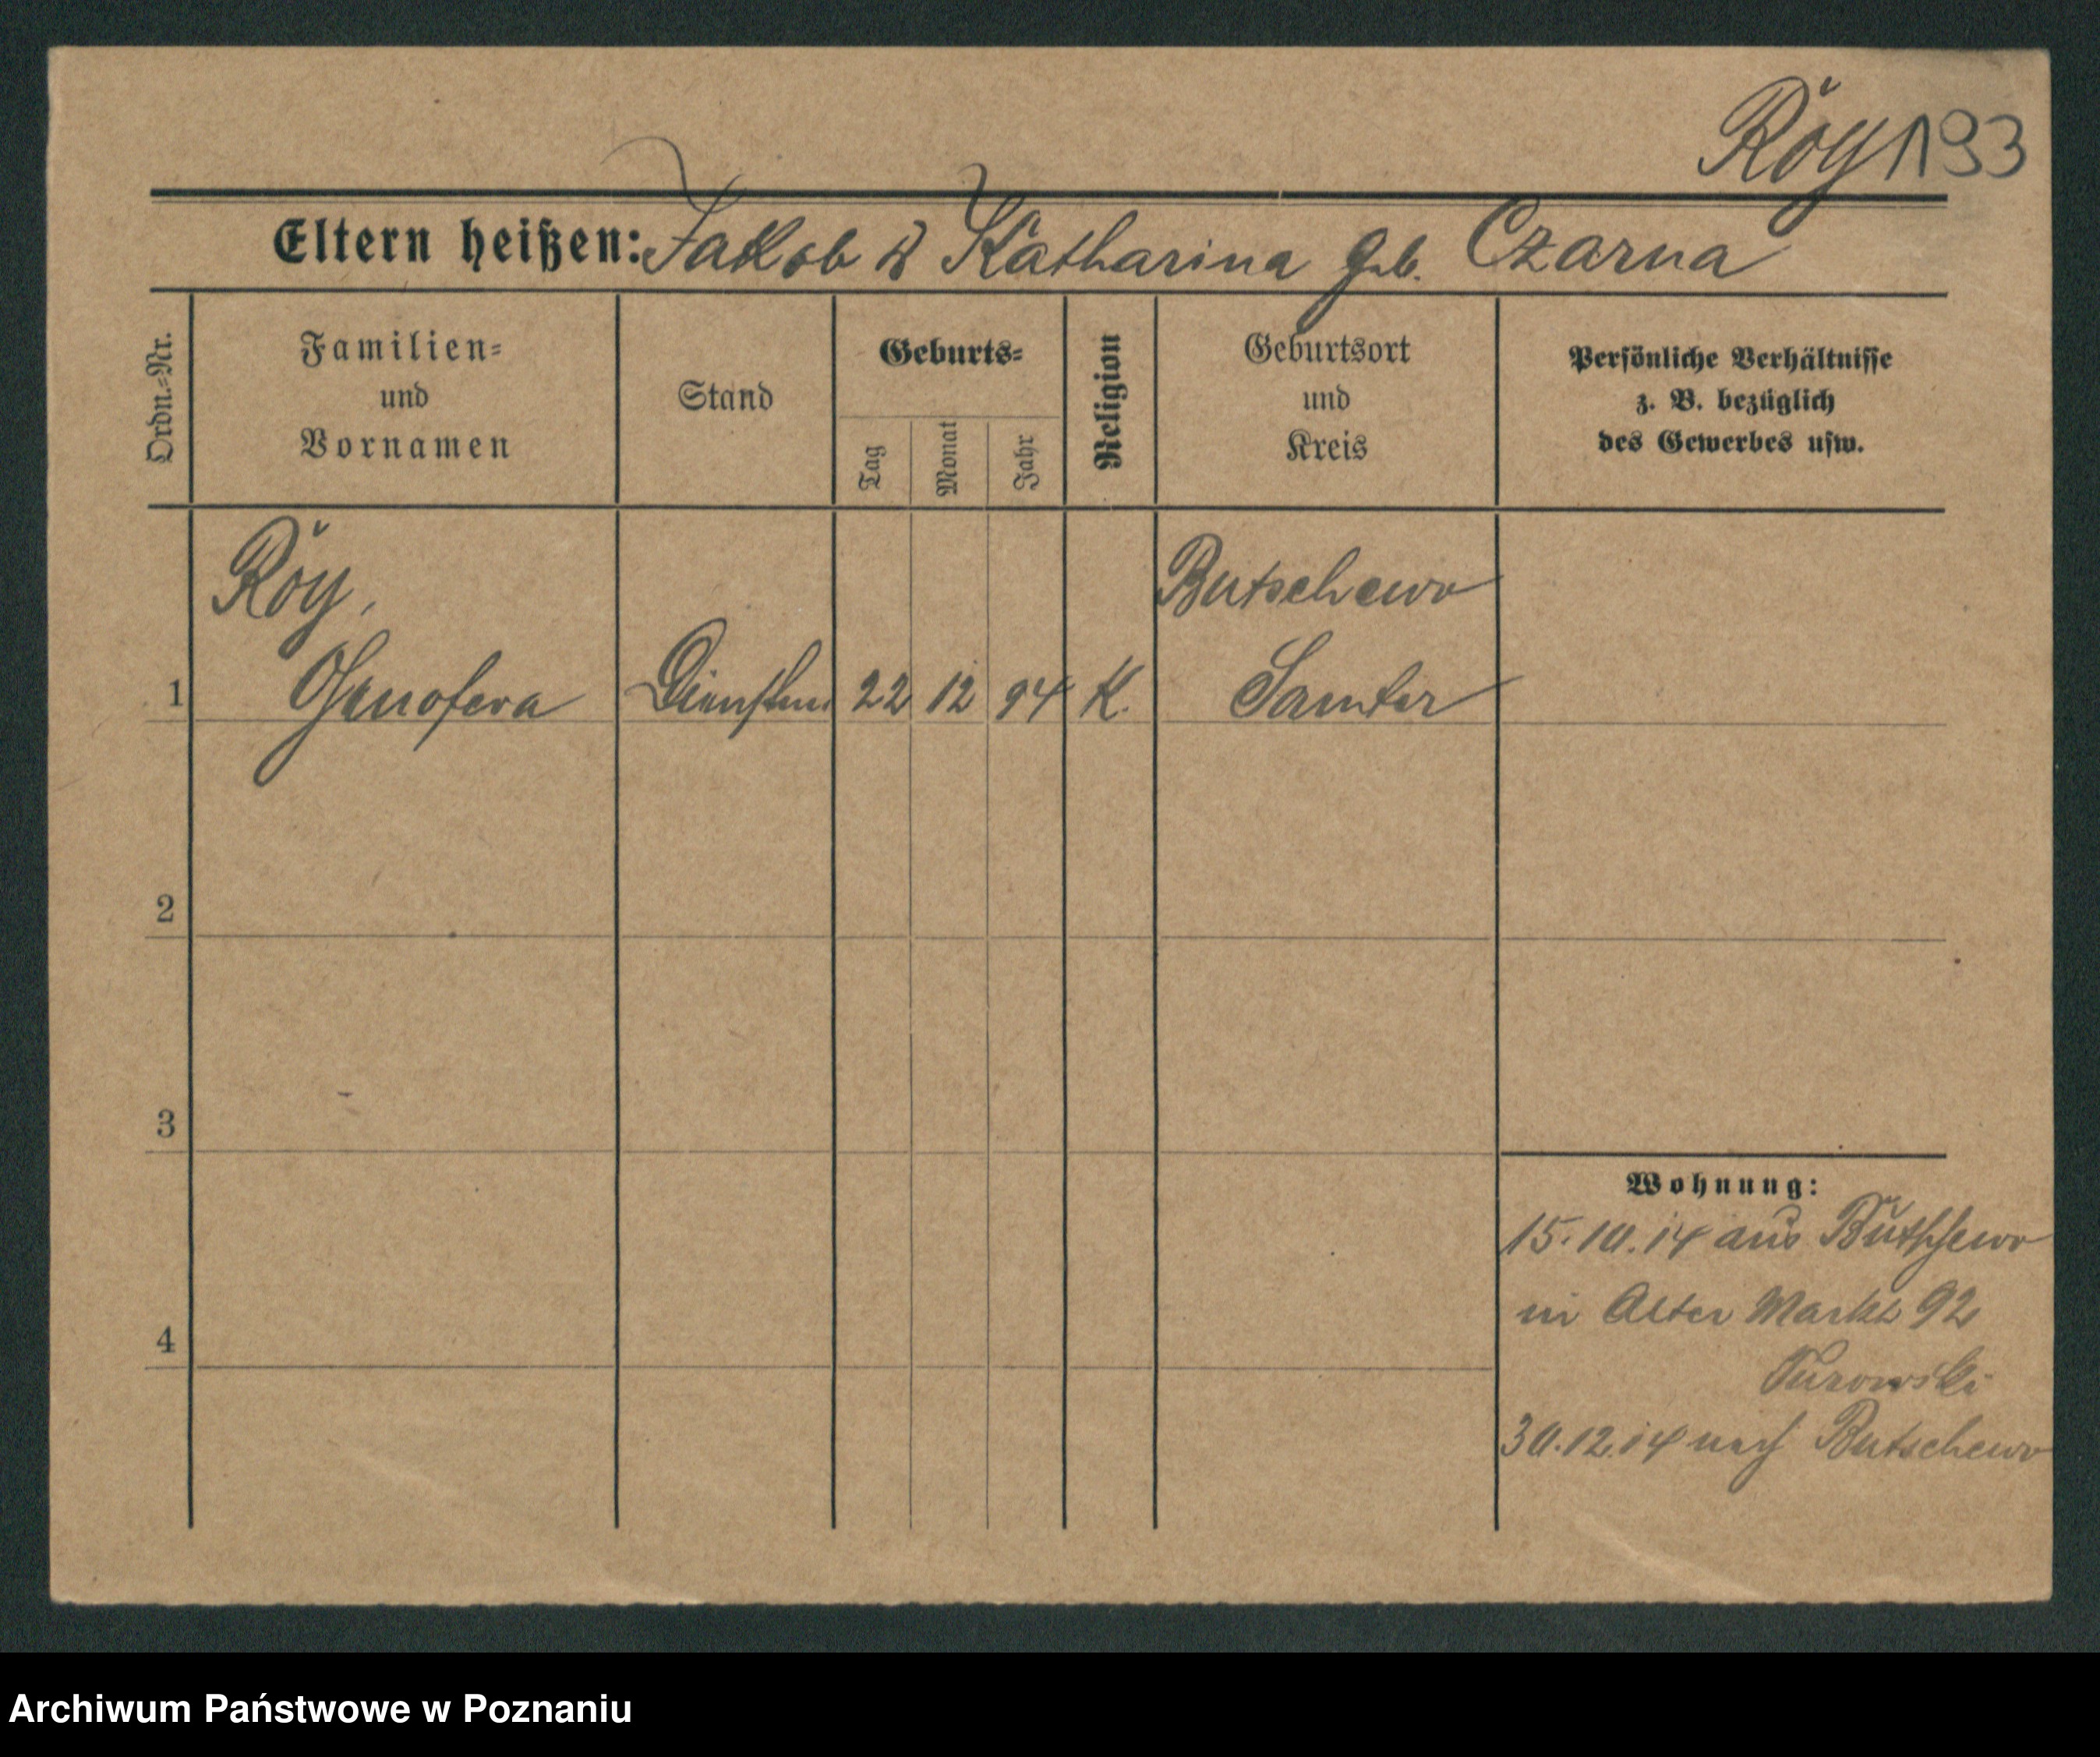 Róy 193
Eltern heißen: Jakob & Katharina geb. Czarna
Ordn.-Nr.
Familien-
und
Vornamen
Stand
Geburts-
Tag
Monat
Jahr
Religion
Geburtsort
und
Kreis
Persönliche Verhältnisse
z. B. bezüglich
des Gewerbes usw.
Róy,
Butschewo
1 Genofeva Dienstm. 22 12 94 K. Samter
2
3
4
Wohnung:
15.10.14 aus Butschewo
in Alter Markt 92
30.12.14 nach Butschewo
Archiwum Państwowe w Poznaniu